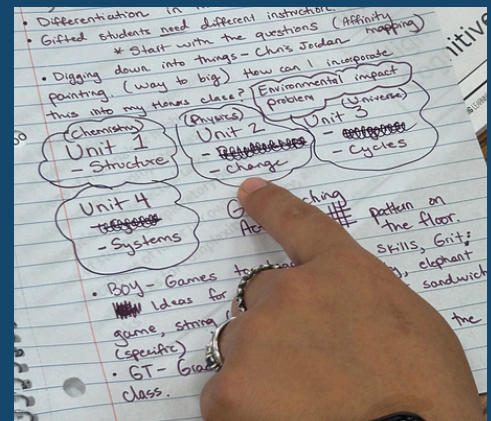 • Differentiation in
• Gifted students need different instruction.
* Start with the questions (Affinity mapping)
• Digging down into things - Chris Jordan
painting (way to big) How can I incorporate
this into my Honors class?
Environmental impact
problem
(Chemistry)
Unit 1
- Structure
(Physics)
Unit 2
- Change
(Universe)
Unit 3
- Cycles
Unit 4
- Systems
pattern on
the floor.
• BOY - Games
skills, Grit;
Ideas for
elephant
game, string
sandwich
(specific)
the
• GT -
class.